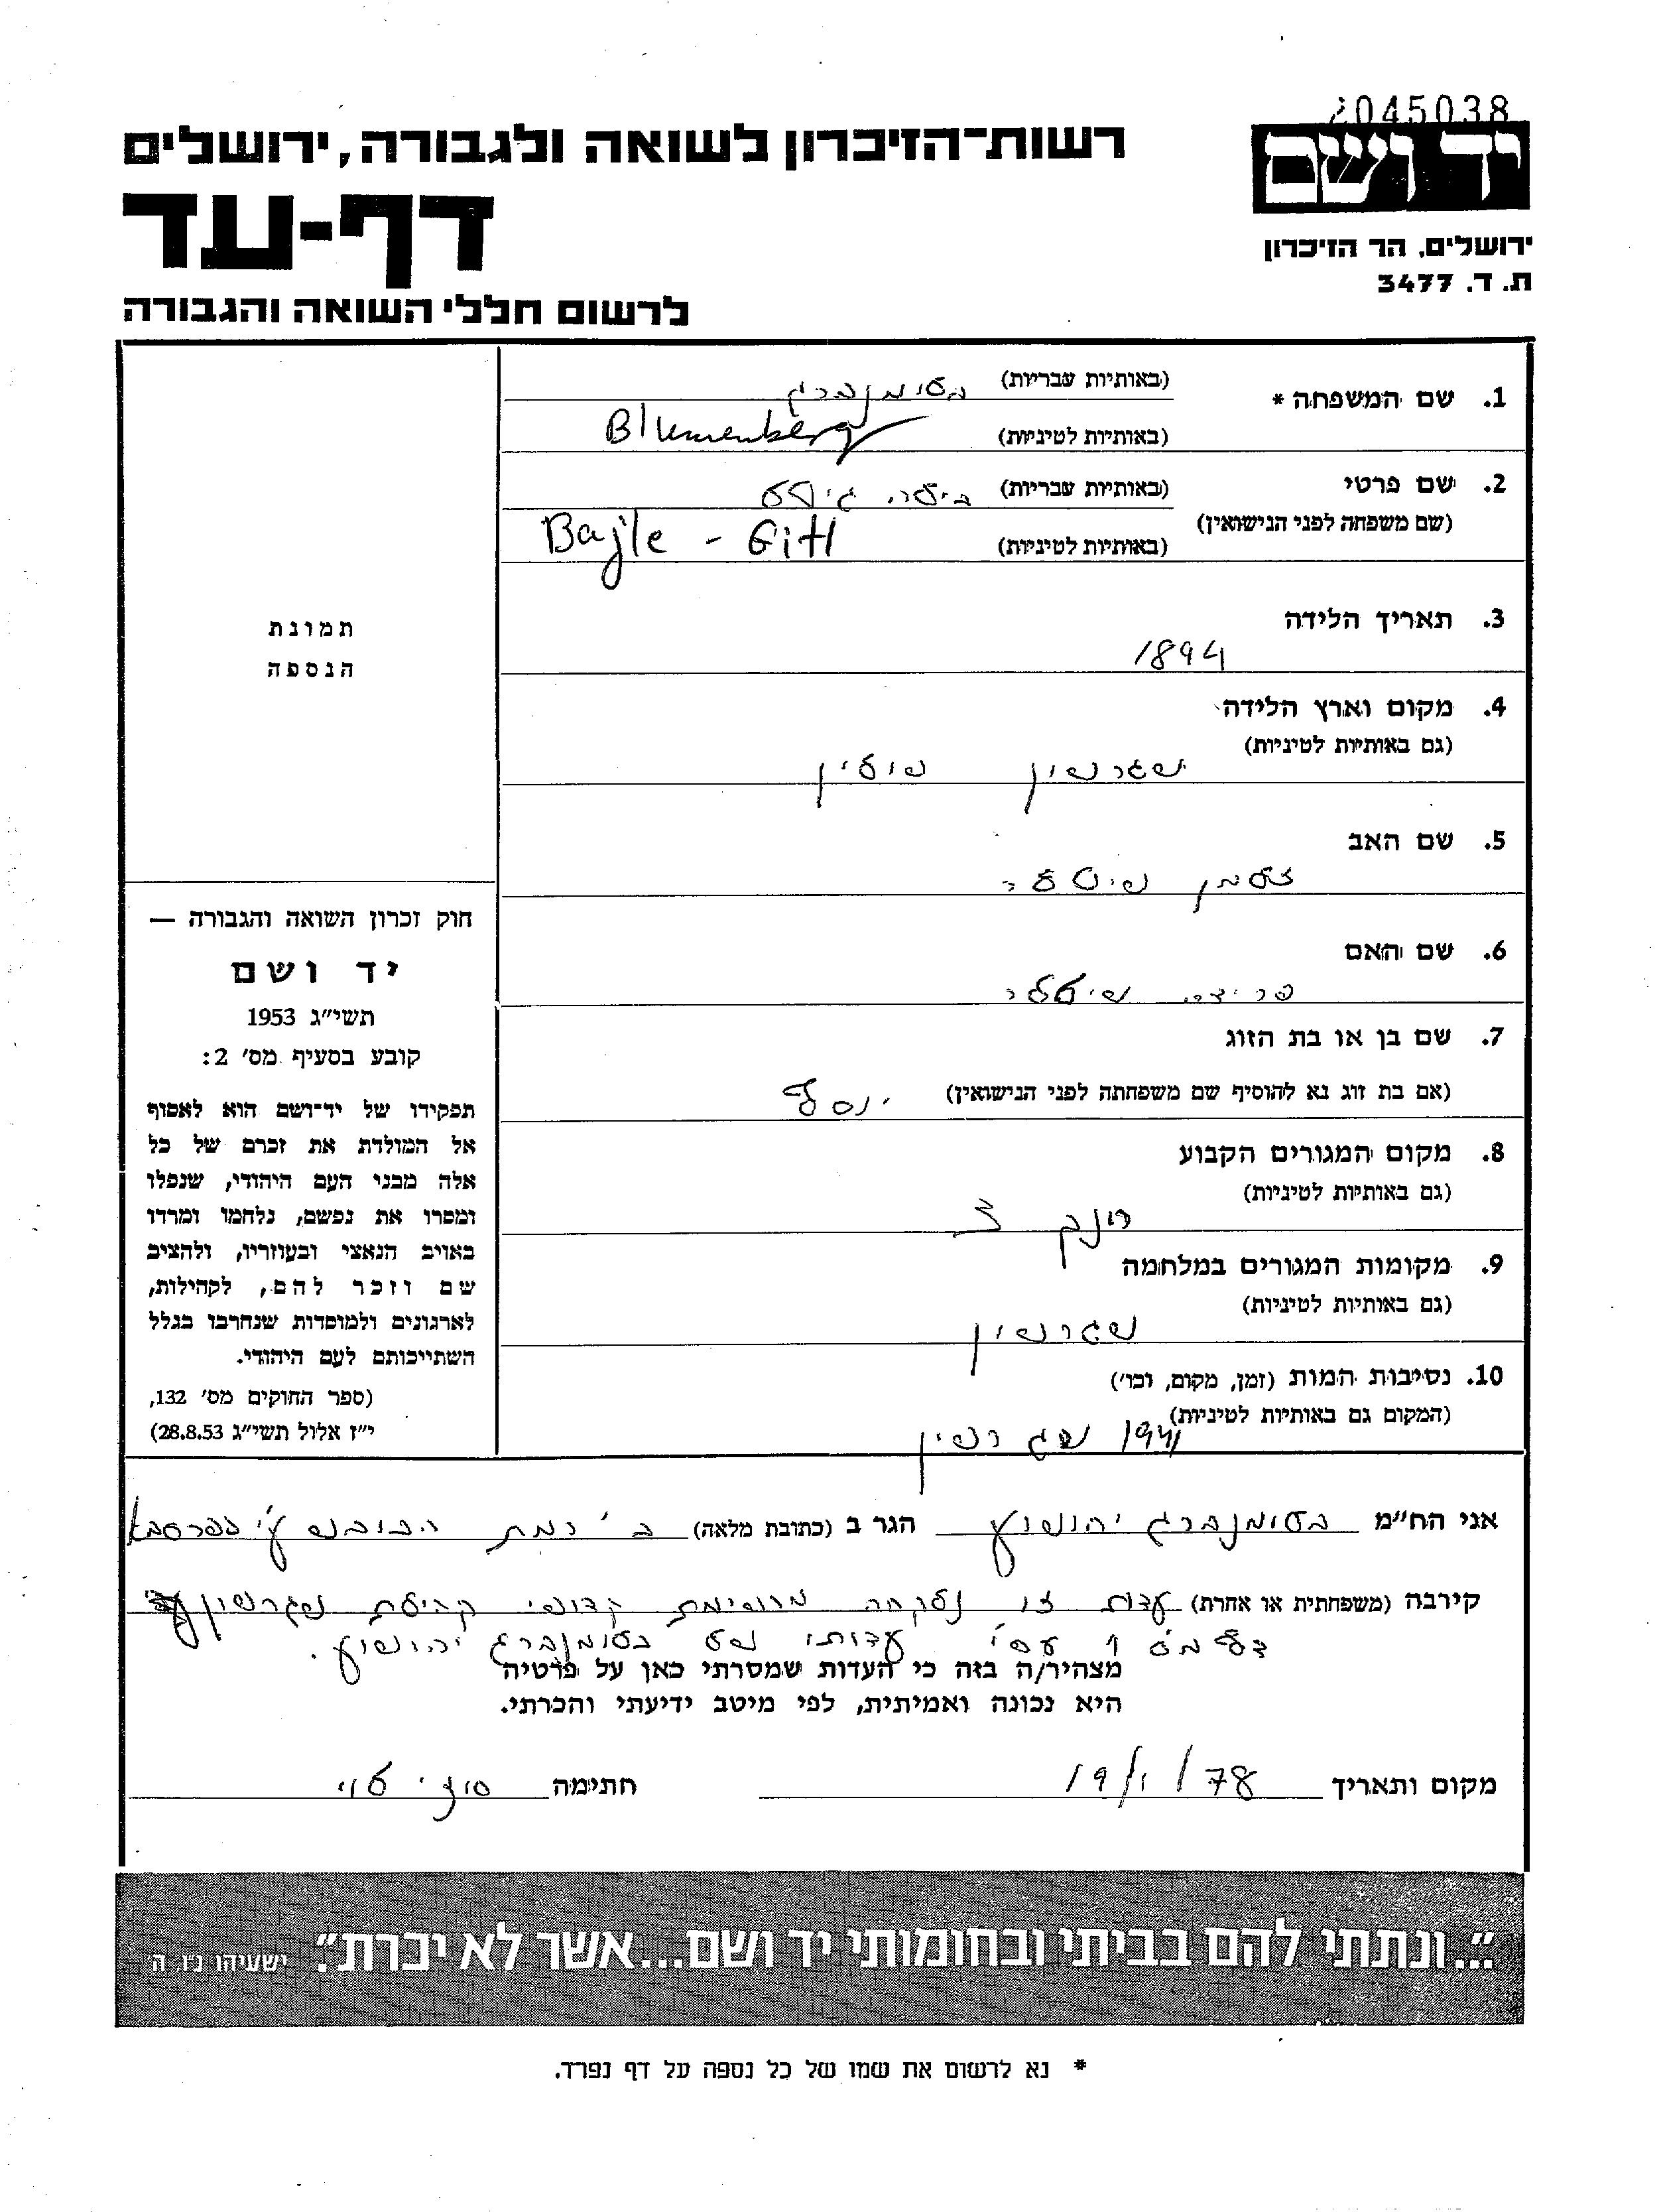 2045038
יד ושם
ירושלים, הר הזיכרון
ת. ד. 3477
רשות-הזיכרון לשואה ולגבורה, ירושלים
דף-עד
לרשום חללי השואה והגבורה
1. שם המשפחה *
(באותיות עבריות) בלומנברג
(באותיות לטיניות) Blumenberg
2. שם פרטי
(שם משפחה לפני הנישואין)
(באותיות עבריות) ביילה גיטל
(באותיות לטיניות) Bajle - Gitl
3. תאריך הלידה
1894
4. מקום וארץ הלידה
(גם באותיות לטיניות)
שגרשין פולין
5. שם האב
זלמן
6. שם האם
7. שם בן או בת הזוג
(אם בת זוג נא להוסיף שם משפחתה לפני הנישואין) יוסף
8. מקום המגורים הקבוע
(גם באותיות לטיניות)
9. מקומות המגורים במלחמה
(גם באותיות לטיניות)
שגרשין
10. נסיבות המות (זמן, מקום, וכו')
(המקום גם באותיות לטיניות)
1941 שגרשין
תמונת
הנספה
חוק זכרון השואה והגבורה —
יד ושם
תשי"ג 1953
קובע בסעיף מס' 2:
תפקידו של יד-ושם הוא לאסוף
אל המולדת את זכרם של כל
אלה מבני העם היהודי, שנפלו
ומסרו את נפשם, נלחמו ומרדו
באויב הנאצי ובעוזריו, ולהציב
שם וזכר להם, לקהילות,
לארגונים ולמוסדות שנחרבו בגלל
השתייכותם לעם היהודי.
(ספר החוקים מס' 132,
י"ז אלול תשי"ג 28.8.53)
אני הח"מ בלומנברג יהושע הגר ב (כתובת מלאה) רמת הכובש ע"י כפר סבא
קירבה (משפחתית או אחרת) עדות זו נלקחה מרשימת קדושי קהילת שגרשין
דף מס 1 עפ"י עדותו של בלומנברג יהושע.
מצהיר/ה בזה כי העדות שמסרתי כאן על פרטיה
היא נכונה ואמיתית, לפי מיטב ידיעתי והכרתי.
מקום ותאריך 19/1/78 חתימה
"...ונתתי להם בביתי ובחומותי יד ושם...אשר לא יכרת". ישעיהו נ"ו, ה
* נא לרשום את שמו של כל נספה על דף נפרד.